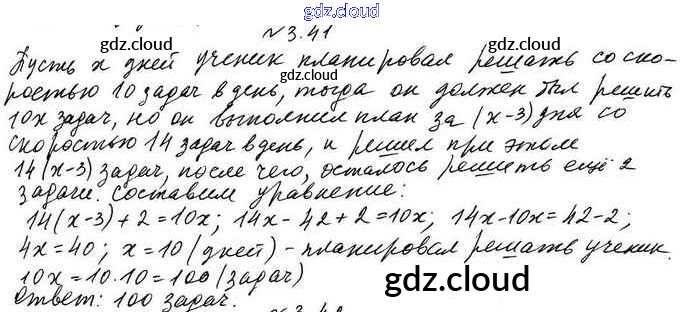 gdz.cloud
№3.41
gdz.cloud gdz.cloud
Пусть x дней ученик планировал решать со ско-
ростью 10 задач в день, тогда он должен был решить
10x задач, но он выполнил план за (x-3) дня со
скоростью 14 задач в день, и решил при этом
14(x-3) задач, после чего, осталось решить ещё 2
задачи. Составим уравнение:
gdz.cloud gdz.cloud
14(x-3)+2=10x; 14x-42+2=10x; 14x-10x=42-2;
4x=40; x=10 (дней) - планировал решать ученик.
10x=10·10=100 (задач)
gdz.cloud
Ответ: 100 задач.